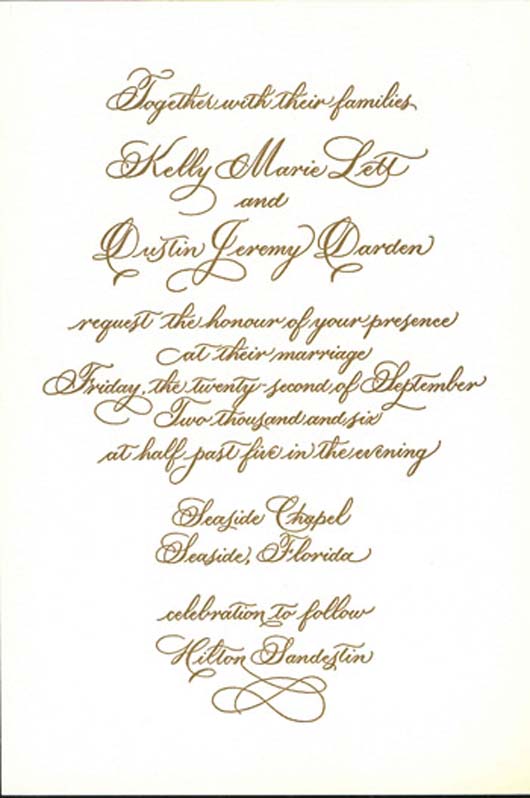 Together with their families
Kelly Marie Lett
and
Dustin Jeremy Darden
request the honour of your presence
at their marriage
Friday, the twenty-second of September
Two thousand and six
at half past five in the evening
Seaside Chapel
Seaside, Florida
celebration to follow
Hilton Sandestin